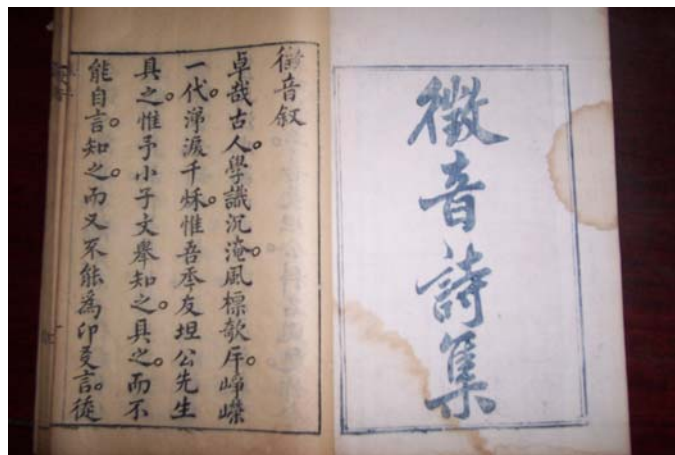 徵音詩集
徵音叙
卓哉古人。學識沉淹。風標。崢嶸
一代。渟千秌。惟吾季友坦公先生
具之。惟予小子文舉知之。具之。而不
能自言。知之。而又不能為印言。徒